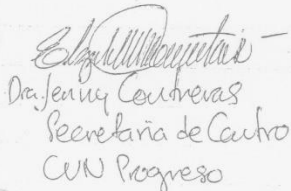 Dra. Jenny Contreras
Secretaria de Centro
CUN Progreso